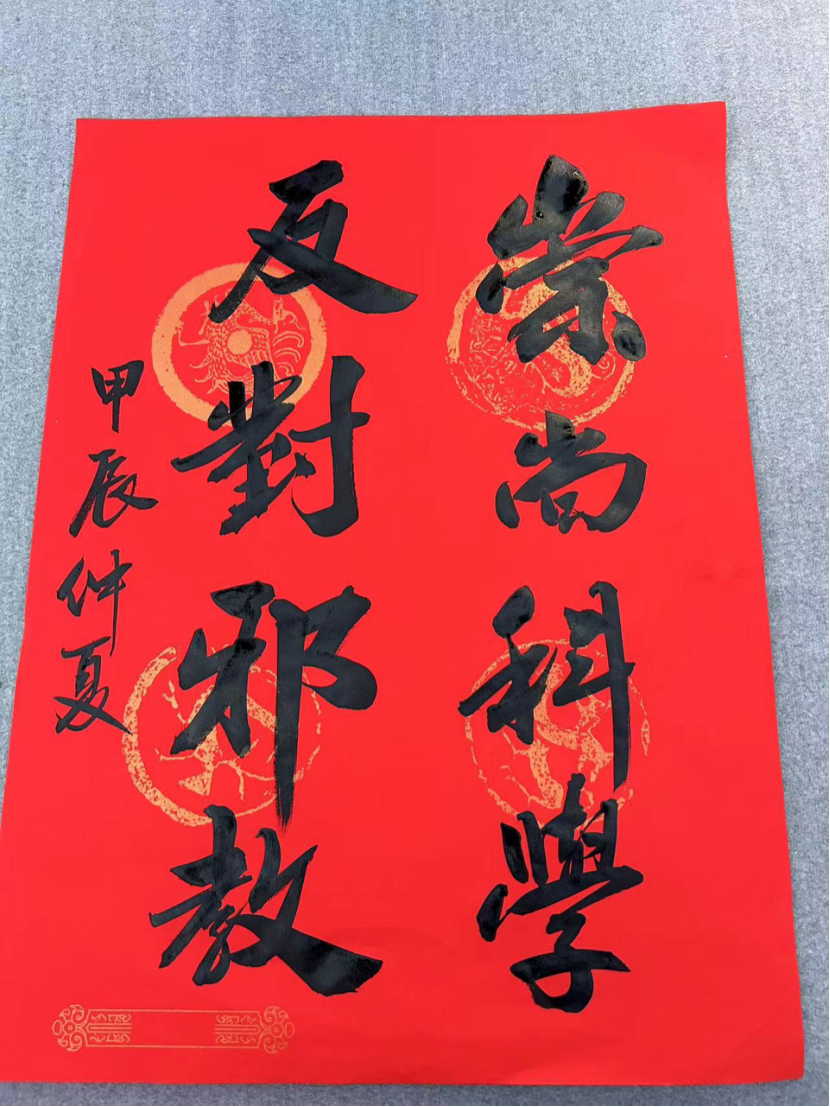 崇尚科學
反對邪教
甲辰仲夏